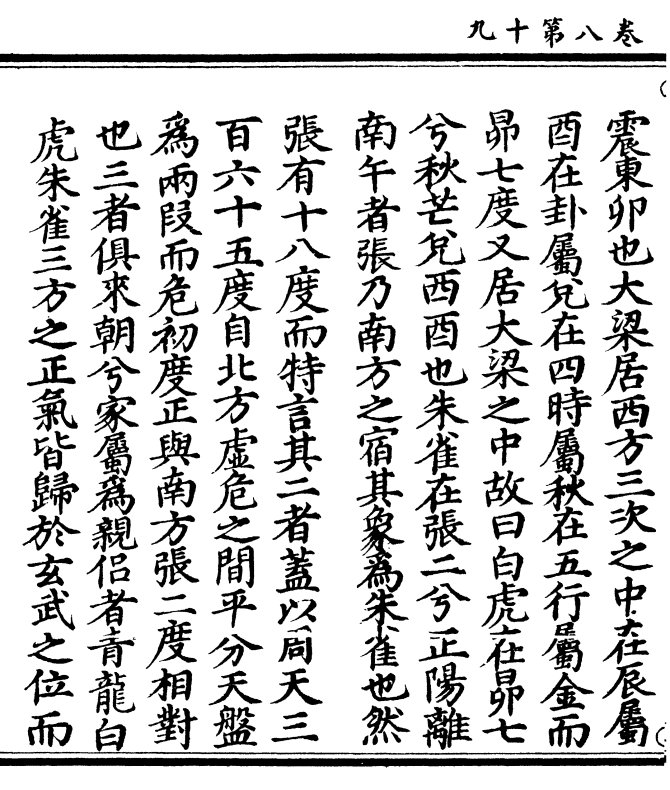 卷八第十九
震東卯也大梁居西方三次之中在辰屬
酉在卦屬兌在四時屬秋在五行屬金而
昴七度又居大梁之中故曰白虎在昴七
兮秋芒兌西酉也朱雀在張二兮正陽離
南午者張乃南方之宿其象爲朱雀也然
張有十八度而特言其二者蓋以周天三
百六十五度自北方虛危之間平分天盤
爲兩段而危初度正與南方張二度相對
也三者俱來朝兮家屬爲親侶者青龍白
虎朱雀三方之正氣皆歸於玄武之位而